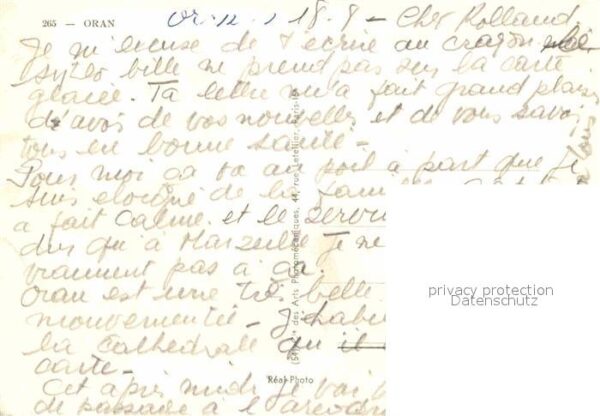 265 — ORAN
18.9 - Cher Rolland
Je m'excuse de t'écrire au crayon
bille ne prend pas sur la carte
glacée. Ta lettre m'a fait grand plaisir
d'avoir de vos nouvelles et de vous savoir
tous en bonne santé -
Pour moi ça va au poil à part que je
suis éloigné de la
à fait calme. et le
dur qu'à Marseille Je ne
vraiment pas à ça.
Oran est une très belle
mouvementée - J'habi
la cathédrale
carte -
Cet après midi je vais
de passage à l'
(54) des Arts Photomécaniques, 44, rue Letellier, Paris-15e
Réal-Photo
privacy protection
Datenschutz